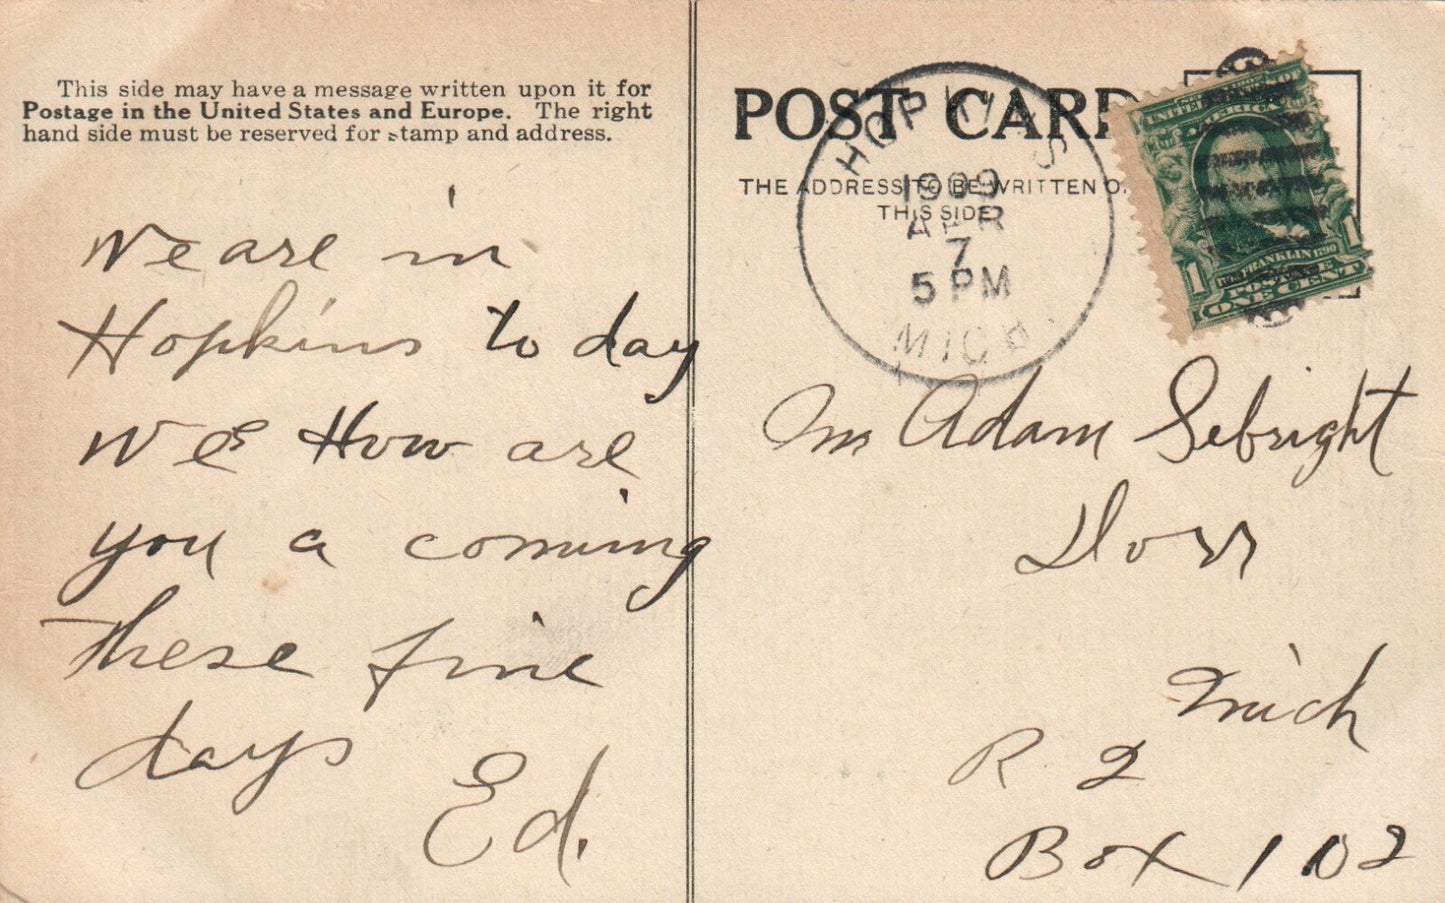 This side may have a message written upon it for
Postage in the United States and Europe. The right
hand side must be reserved for stamp and address.
We are in
Hopkins to day
we How are
you a coming
these fine
days
Ed.
POST CARD
THE ADDRESS TO BE WRITTEN ON
THIS SIDE
HOPKINS
1909
APR
7
5 PM
MICH.
UNITED STATES OF
AMERICA
1 1
FRANKLIN
POSTAGE
ONE CENT
Mr Adam Sebright
Dorr
Mich
R 2
Box 102